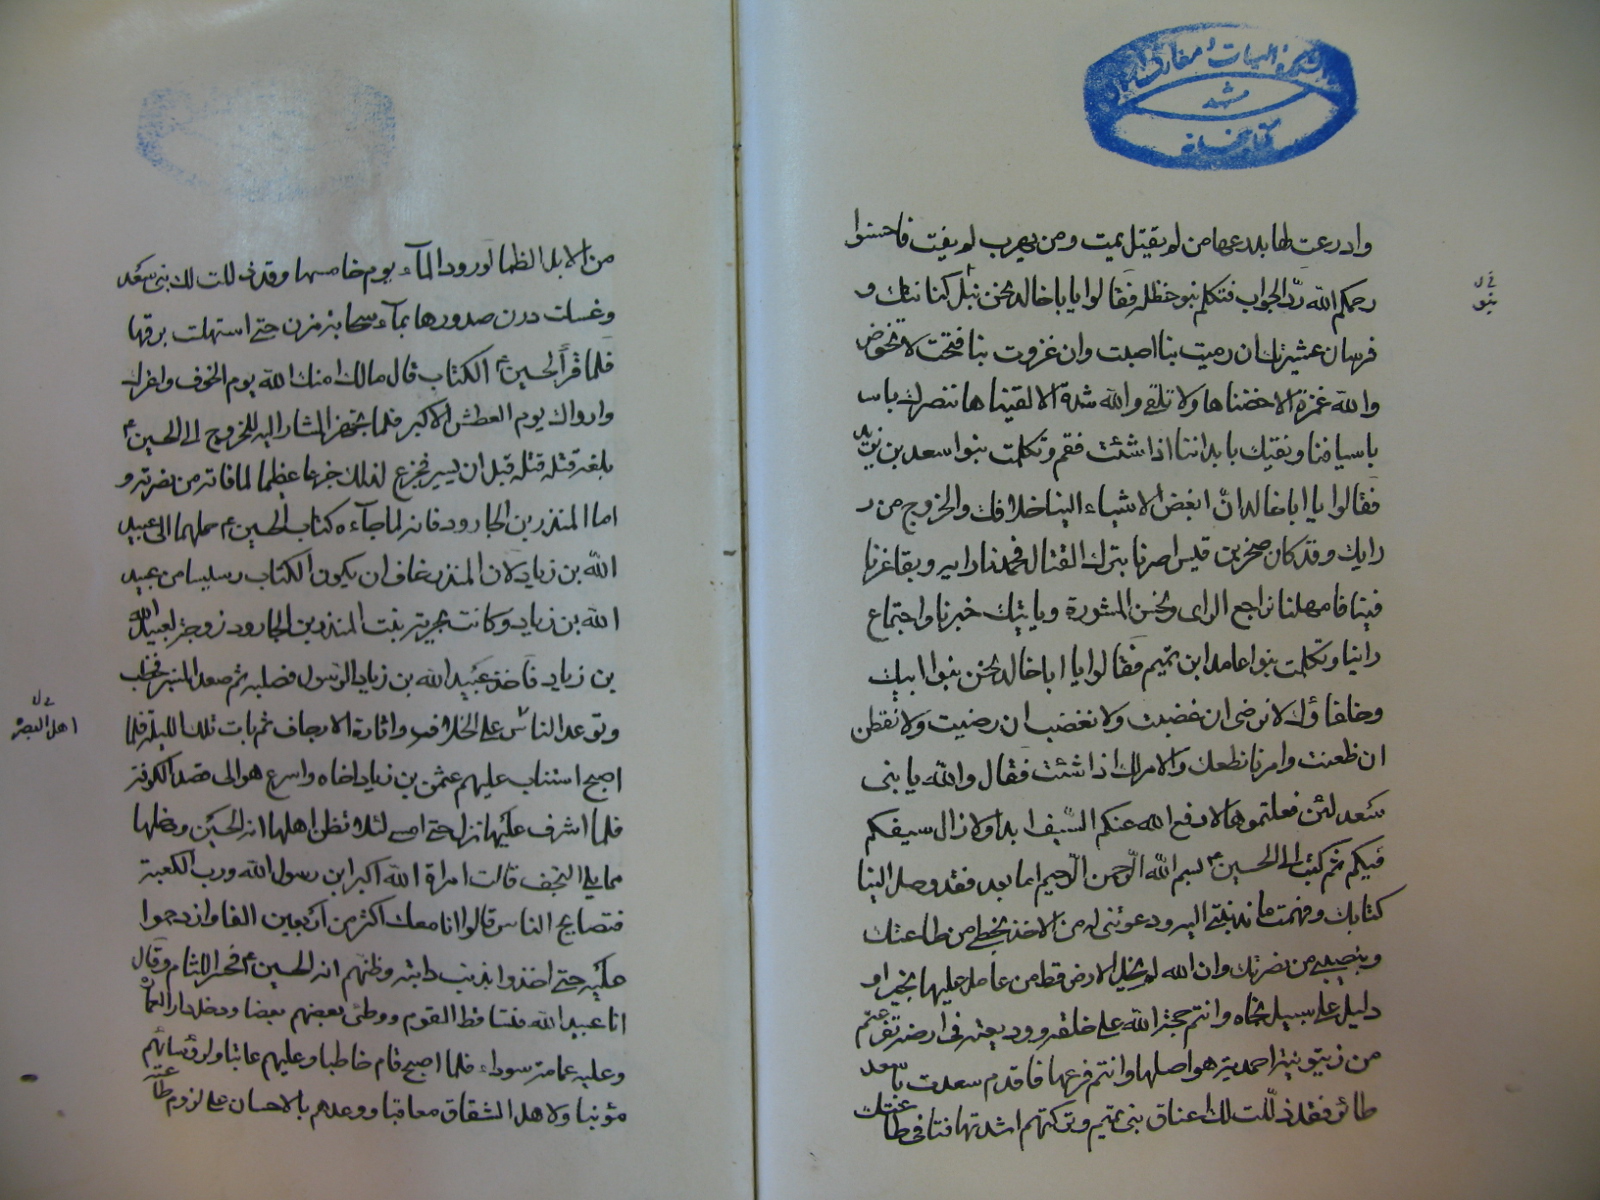 دانشکده الهیات و معارف اسلامی
مشهد
کتابخانه
وادرعت لها بدرعها من لم یقتل یمت ومن یهرب لم یفت فاحسنوا
رحمکم الله ردّ الجواب فتکلم بنو حنظله فقالوا یا باخالد نحن نبل کنانتک و
فرسان عشیرتک ان رمیت بنا اصبت وان غزوت بنا فتحت لا تخوض
والله غمرة الا خضناها ولا تلقی والله شدة الا لقیناها ننصرک باسـ
باسیافنا ونقیک بابداننا اذا شئت فقم وتکلمت بنوا سعد بن یزید
فقالوا یا اباخالد انّ ابغض الاشیاء الینا خلافک والخروج من ر
رایک وقد کان صخر بن قیس امرنا بترک القتال فحمدنا رایه وبقا عزنا
فینا فامهلنا نراجع الرای ونحسن المشورة ویاتیک خبرنا واجتماع
راینا وتکلمت بنوا عامد ابن تمیم فقالوا یا اباخالد نحن بنوا ابیک
وحلفاؤک لا نرضی ان غضبت ولا نغضب ان رضیت ولا نقطن
ان ظعنت وامرنا نطعک والامر لک اذا شئت فقال والله یا بنی
سعد لئن فعلتموها لا رفع الله عنکم السّیف ابدا ولا زال سیفکم
فیکم ثم کتب الی الحسین ع بسم الله الرّحمن الرّحیم اما بعد فقد وصل الینا
کتابک وفهمت ما ندبتنی الیه ودعوتنی له من الاخذ بحظی من طاعتک
وبنصیبی من نصرتک وان الله لم یخل الارض قط من عامل علیها بخیر او
دلیل علی سبیل نجاه وانتم حجة الله علی خلقه وودیعته فی ارضه تفرعتم
من زیتونیة احمدیة هو اصلها وانتم فرعها فاقدم سعدت باسعد
طائر فقد ذلّلت لک اعناق بنی تمیم وترکتهم اشد تهافتا فی طاعتک
خ ل
بنو
من الابل الظما لورود المآء یوم خامسها وقد ذللت لک بنی سعد
وغسلت درن صدورها بمآء سحابة مزن حتی استهلت برقها
فلما قرأ الحسین ع الکتاب قال مالک امنک الله یوم الخوف واعزک
وارواک یوم العطش الاکبر فلما تجهز المشار الیه للخروج الی الحسین ع
بلغه قتله قتله قبل ان یسیر فجزع لذلک جزعا عظیما لما فاته من نصرته و
اما المنذر بن الجارود فانه لما جآءه کتاب الحسین ع حملهما الی عبید
الله بن زیاد لان المنذر خاف ان یکون الکتاب دسیسا من عبید
الله بن زیاد وکانت بحریة بنت المنذر بن الجارود زوجة لعبید الله
بن زیاد فاخذ عبید الله بن زیاد الرسول فصلبه ثم صعد المنبر فخطب
وتوعد الناس علی الخلاف واثارة الارجاف ثم بات تلک اللیلة فلما
اصبح استناب علیهم عثمن بن زیاد اخاه واسرع هو الی قصد الکوفة
فلما اشرف علیها نزل حتی امسی لئلا تظن اهلها انه الحسین ودخلها
مما یلی النجف قالت امراة الله اکبر ابن رسول الله ورب الکعبة
فتصایح الناس قالوا انا معک اکثر من اربعین الفا وازدحموا
علیه حتی اخذوا بذنب دابته وظنهم انه الحسین ع فحسر اللثام وقال
انا عبید الله فتساقط القوم ووطئ بعضهم بعضا ودخل دار الامارة
وعلیه عمامة سوداء فلما اصبح قام خاطبا وعلیهم عاتبا ولرؤسائهم
مؤنبا ولاهل الشقاق معاقبا ووعدهم بالاحسان علی لزوم طاعته
خ ل
اهل البصره